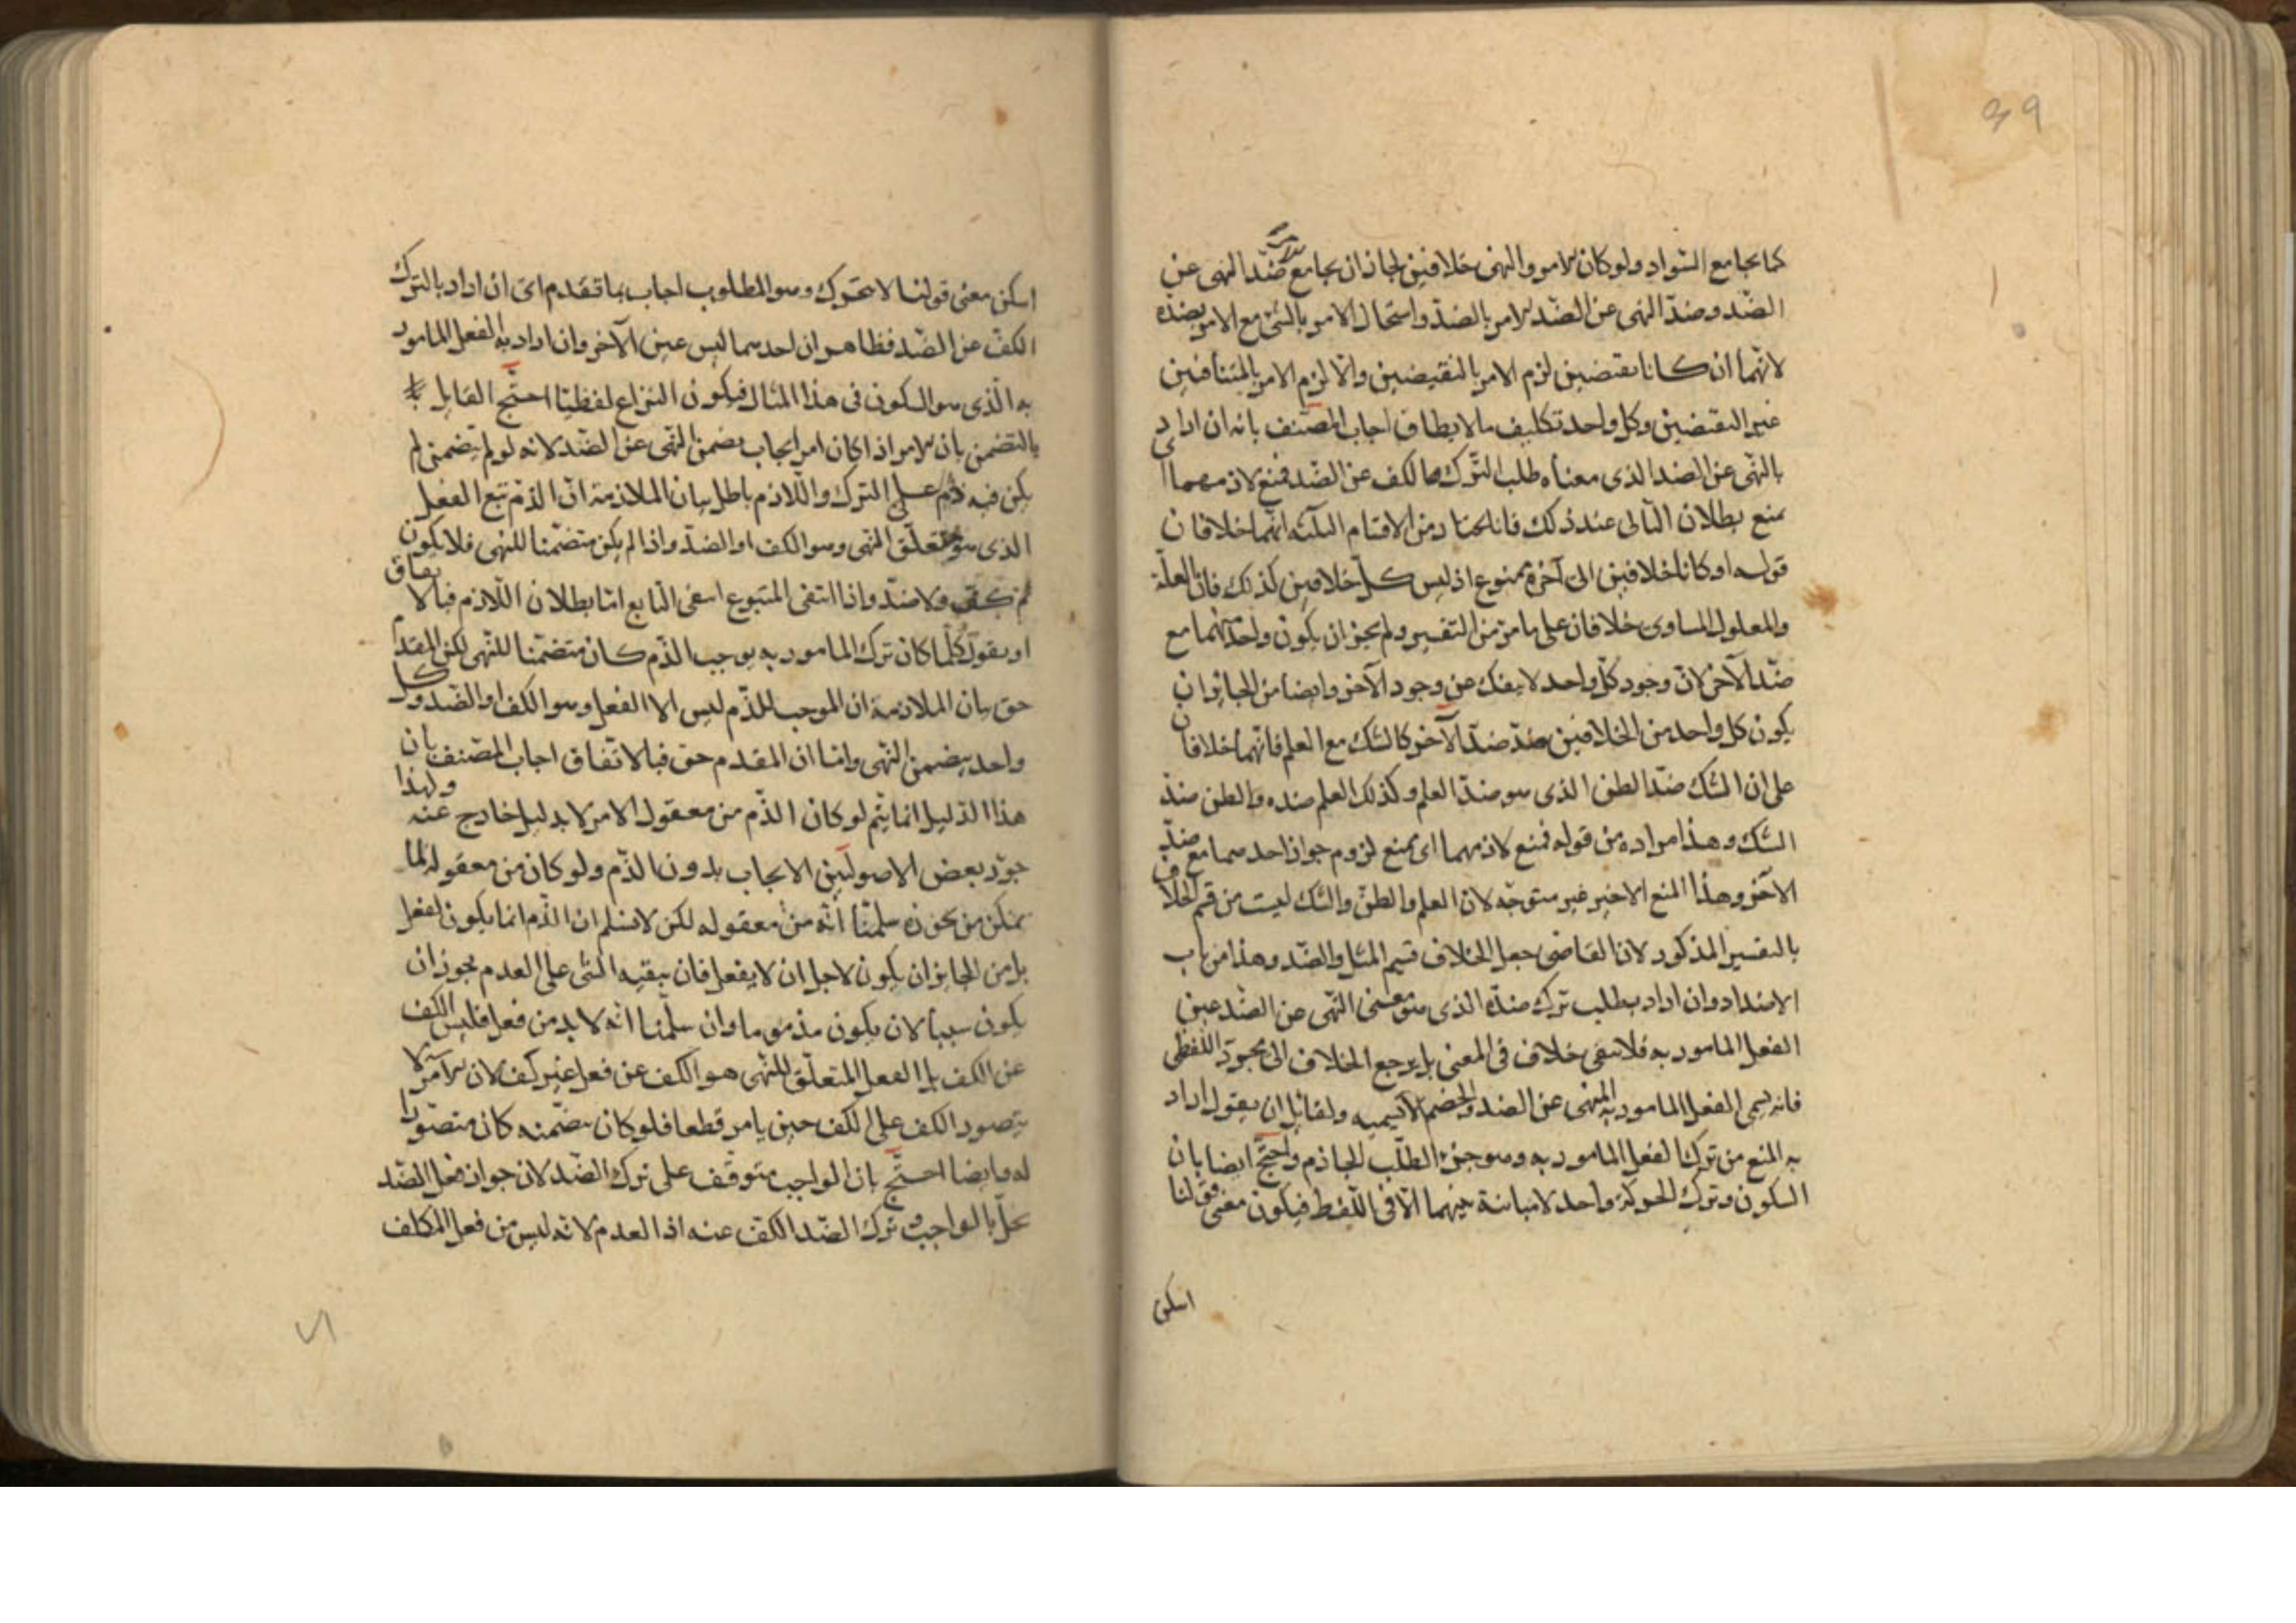 39
كما يجامع السواد ولو كان الامر والنهى خلافين لجاز ان يجامع ضد النهى عن
الضد وضد النهى عن الضد الامر بالضد واستحال الامر بالشئ مع الامر بضده
لانهما ان كانا نقيضين لزم الامر بالنقيضين والا لزم الامر بالمتنافين
غير النقيضين وكل واحد تكليف ما لا يطاق اجاب المصنف بانه ان اراد
بالنهى عن الضد الذى معناه طلب الترك الكف عن الضد فمنع لازمهما اى
نمنع بطلان التالى عند ذلك فانا نختار من الاقسام الثلثة انهما خلافان
قوله لو كانا خلافين الى آخره ممنوع اذ ليس كل خلافين كذلك فان العلة
والمعلول المساوى خلافان على ما مر من التفسير ولم يجز ان يكون واحد منهما مع
ضد الآخر لان وجود كل واحد لا ينفك عن وجود الآخر وايضا من الجايز ان
يكون كل واحد من الخلافين ضد ضد الآخر كالشك مع العلم فانهما خلافان
على ان الشك ضد الظن الذى هو ضد العلم وكذلك العلم ضده والظن ضد
الشك وهذا مراده من قوله فمنع لازمهما اى نمنع لزوم جواز احدهما مع ضد
الآخر وهذا المنع الاخير غير متوجه لان العلم والظن والشك ليست من قسم الخلاف
بالتفسير المذكور لان القاضى جعل الخلاف قسيم المثل والضد وهذا من باب
الاضداد وان اراد بطلب ترك ضده الذى هو معنى النهى عن الضد عين
الفعل المامور به فلا يبقى خلاف فى المعنى بل يرجع الخلاف الى مجرد اللفظى
فانه يسمى الفعل المامور به المنهى عن الضد والخصم لا يسميه ولقائل ان يقول اراد
به المنع من ترك الفعل المامور به وهو جزء الطلب الجازم واحتج ايضا بان
السكون وترك الحركة واحد لا مباينة بينهما الا فى اللفظ فيكون معنى قولنا
اسكن
اسكن معنى قولنا لا تتحرك وهو المطلوب اجاب بما تقدم اى ان اراد بالترك
الكف عن الضد فظاهر ان احدهما ليس عين الآخر وان اراد به الفعل المامور
به الذى هو السكون فى هذا المثال فيكون النزاع لفظيا احتج القايل
بالتضمن بان الامر اذا كان امر ايجاب يضمن النهى عن الضد لانه لو لم يتضمن لم
يكن فيه ذم على الترك واللازم باطل بيان الملازمة ان الذم تبع الفعل
الذى هو متعلق النهى وهو الكف او الضد واذا لم يكن متضمنا للنهى فلا يكون
ثم كف ولا ضد واذا انتفى المتبوع انتفى التابع اما بطلان اللازم فبالاتفاق
او يقول كلما كان ترك المامور به يوجب الذم كان متضمنا للنهى لكن المقدم
حق بيان الملازمة ان الموجب للذم ليس الا الفعل وهو الكف او الضد وكل
واحد يتضمن النهى واما ان المقدم حق فبالاتفاق اجاب المصنف بان
هذا الدليل انما يتم لو كان الذم من معقول الامر لا بدليل خارج عنه ولهذا
جوز بعض الاصوليين الايجاب بدون الذم ولو كان من معقوله لما
تمكن من تجوزه سلمنا انه من معقوله لكن لا نسلم ان الذم انما يكون لفعل
بل من الجايز ان يكون لاجل ان لا يفعل فان تبقيه الشى على العدم يجوز ان
يكون سببا لان يكون مذموما وان سلمنا انه لا بد من فعل فليس الكف
عن الكف بل الفعل المتعلق للنهى هو الكف عن فعل غير كف لان الامر لا
يتصور الكف على الكف حين يامر قطعا فلو كان يضمنه كان متصورا
له وايضا احتج بان الواجب متوقف على ترك الضد لان جواز فعل الضد
يخل بالواجب وترك الضد الكف عنه اذ العدم لانه ليس من فعل المكلف